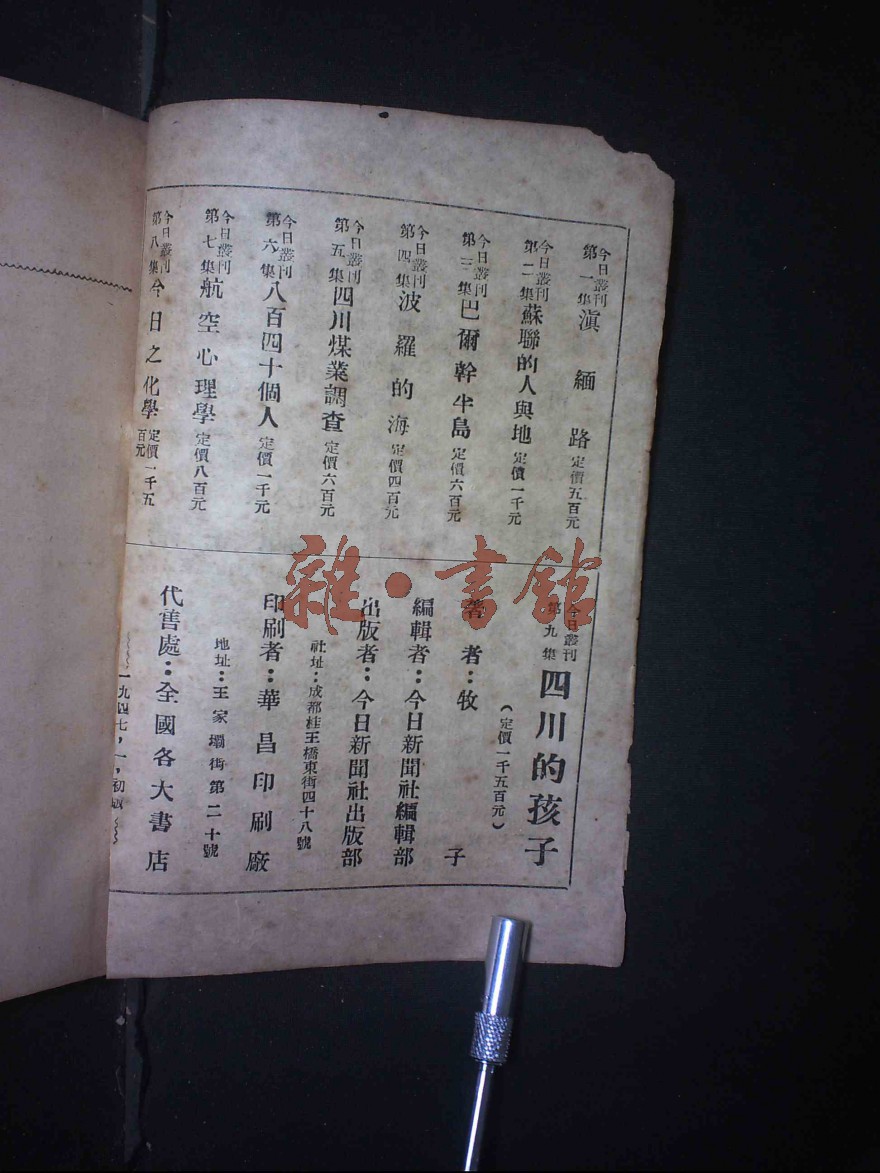 今日叢刊第一集 滇緬路 定價五百元
今日叢刊第二集 蘇聯的人與地 定價一千元
今日叢刊第三集 巴爾幹半島 定價六百元
今日叢刊第四集 波羅的海 定價四百元
今日叢刊第五集 四川煤業調查 定價六百元
今日叢刊第六集 八百四十個人 定價一千元
今日叢刊第七集 航空心理學 定價八百元
今日叢刊第八集 今日之化學 定價一千五百元
今日叢刊第九集 四川的孩子
(定價一千五百元)
著者：牧子
編輯者：今日新聞社編輯部
出版者：今日新聞社出版部
社址：成都桂王橋東街四十八號
印刷者：華昌印刷廠
地址：王家壩街第二十號
代售處：全國各大書店
一九四七，一，初版
雜·書館